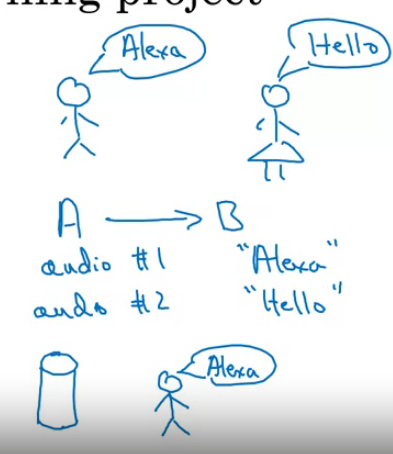 ning project
Alexa
Hello
A → B
audio #1 "Alexa"
audo #2 "Hello"
Alexa